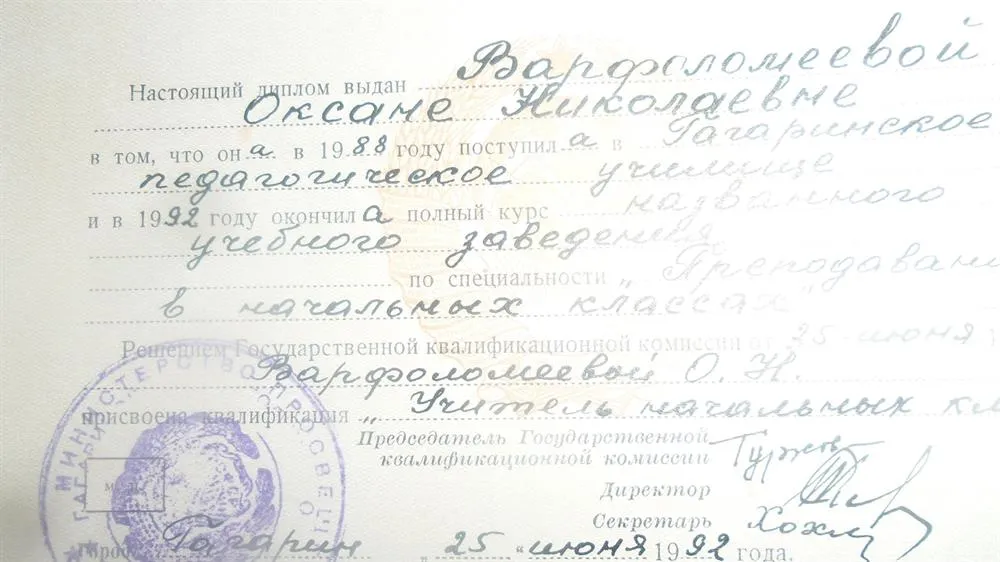 Настоящий диплом выдан Варфоломеевой
Оксане Николаевне
в том, что она в 1988 году поступила в Гагаринское
педагогическое училище
и в 1992 году окончила полный курс названного
учебного заведения
по специальности „Преподавани
в начальных классах"
Решением Государственной квалификационной комиссии от 25 июня
Варфоломеевой О. Н.
присвоена квалификация „Учитель начальных кл
Председатель Государственной
квалификационной комиссии
Директор
Секретарь
Город Гагарин „25" июня 1992 года.
МИНИСТЕРСТВО ПРОСВЕЩ
м. п.